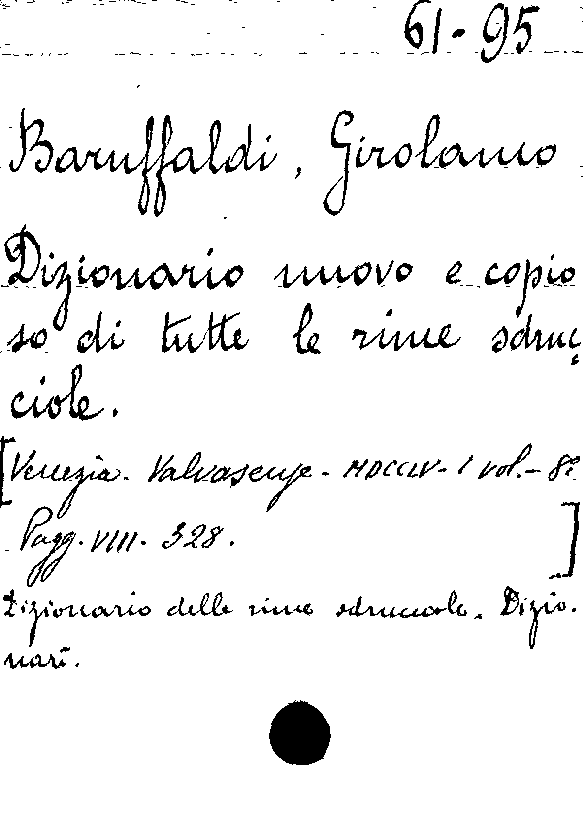 61-95
Baruffaldi, Girolamo
Dizionario nuovo e copio
so di tutte le rime sdruc
ciole.
[Venezia. Valvasense - MDCCLV - 1 vol. - 8º
Pagg. VIII. 328.]
Dizionario delle rime sdrucciole. Dizio.
nari.